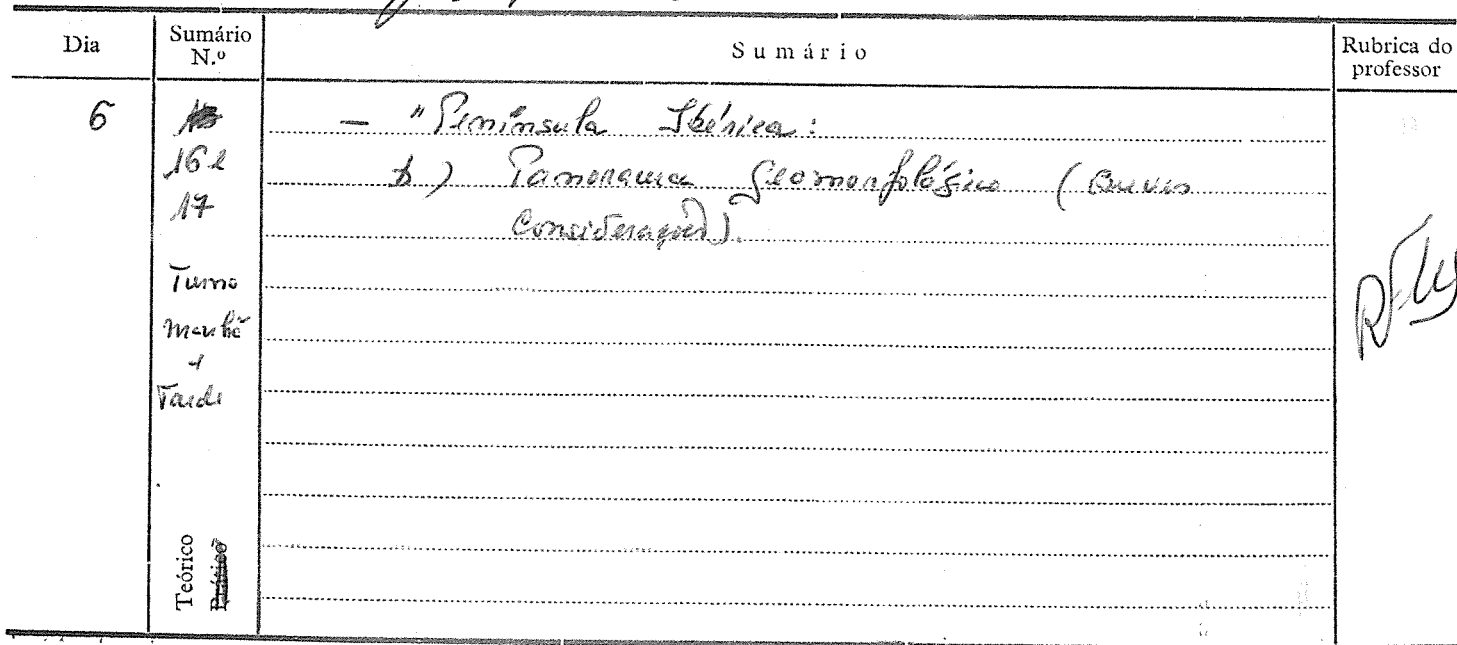 Dia
Sumário
N.º
Sumário
Rubrica do
professor
6
16 e
17
Turno
manhã
e
Tarde
Teórico
Prático
— "Península Ibérica:
b) Panorama Geomorfológico (breves
Considerações).